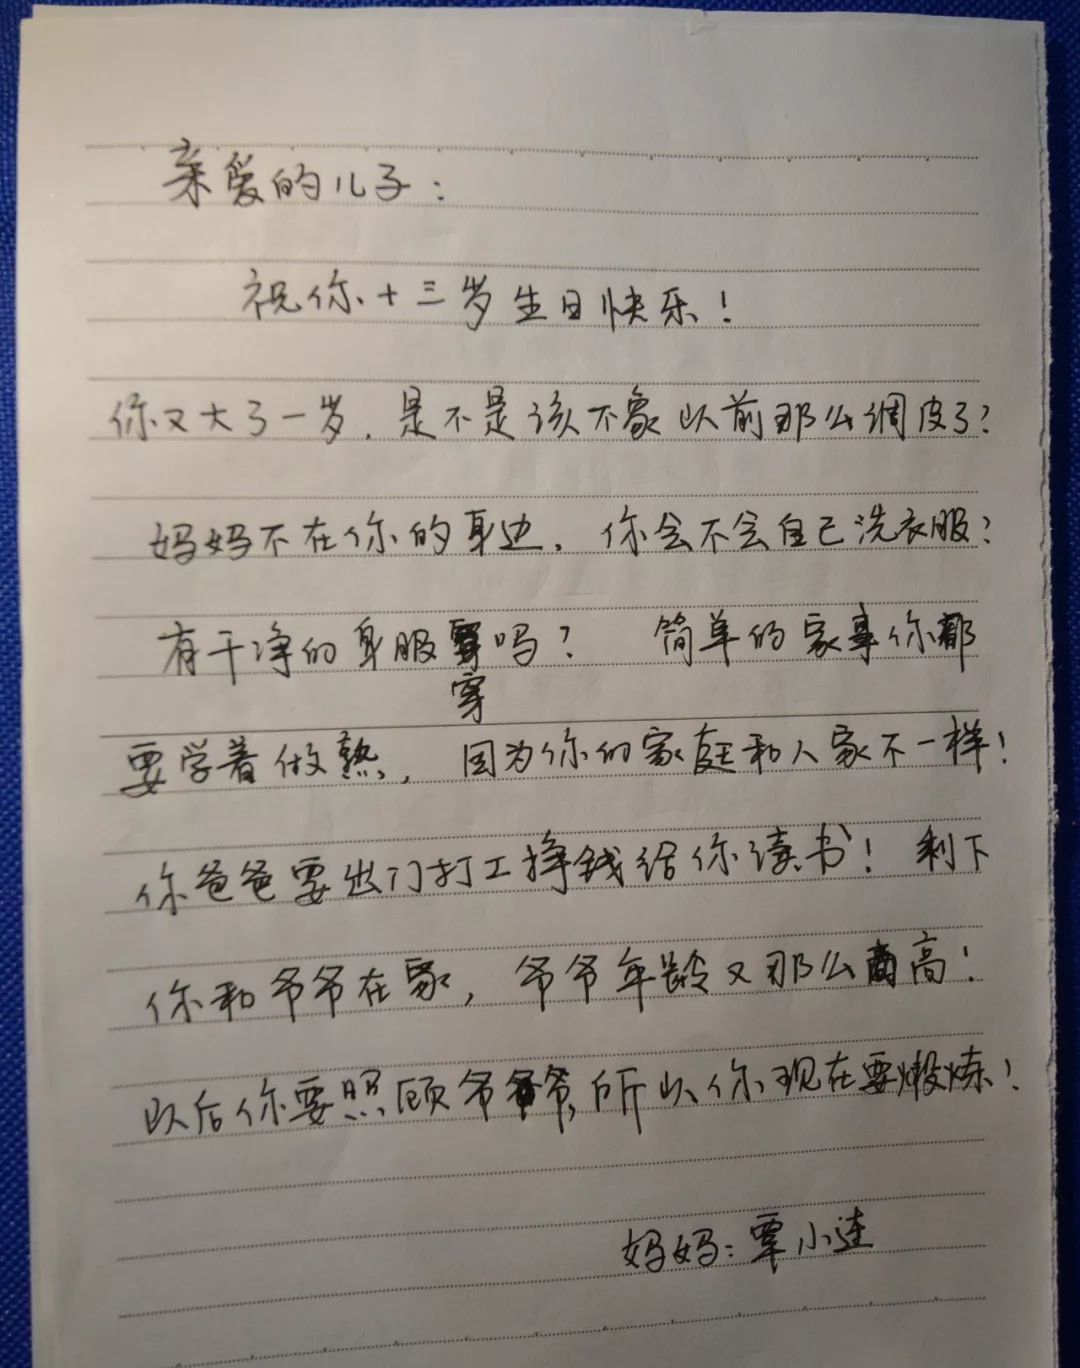 亲爱的儿子：
祝你十三岁生日快乐！
你又大了一岁，是不是该不象以前那么调皮了？
妈妈不在你的身边，你会不会自己洗衣服？
有干净的身服穿吗？ 简单的家事你都
穿
要学着做熟，因为你的家庭和人家不一样！
你爸爸要出门打工挣钱给你读书！剩下
你和爷爷在家，爷爷年龄又那么高！
以后你要照顾爷爷，所以你现在要煅炼！
妈妈：覃小连